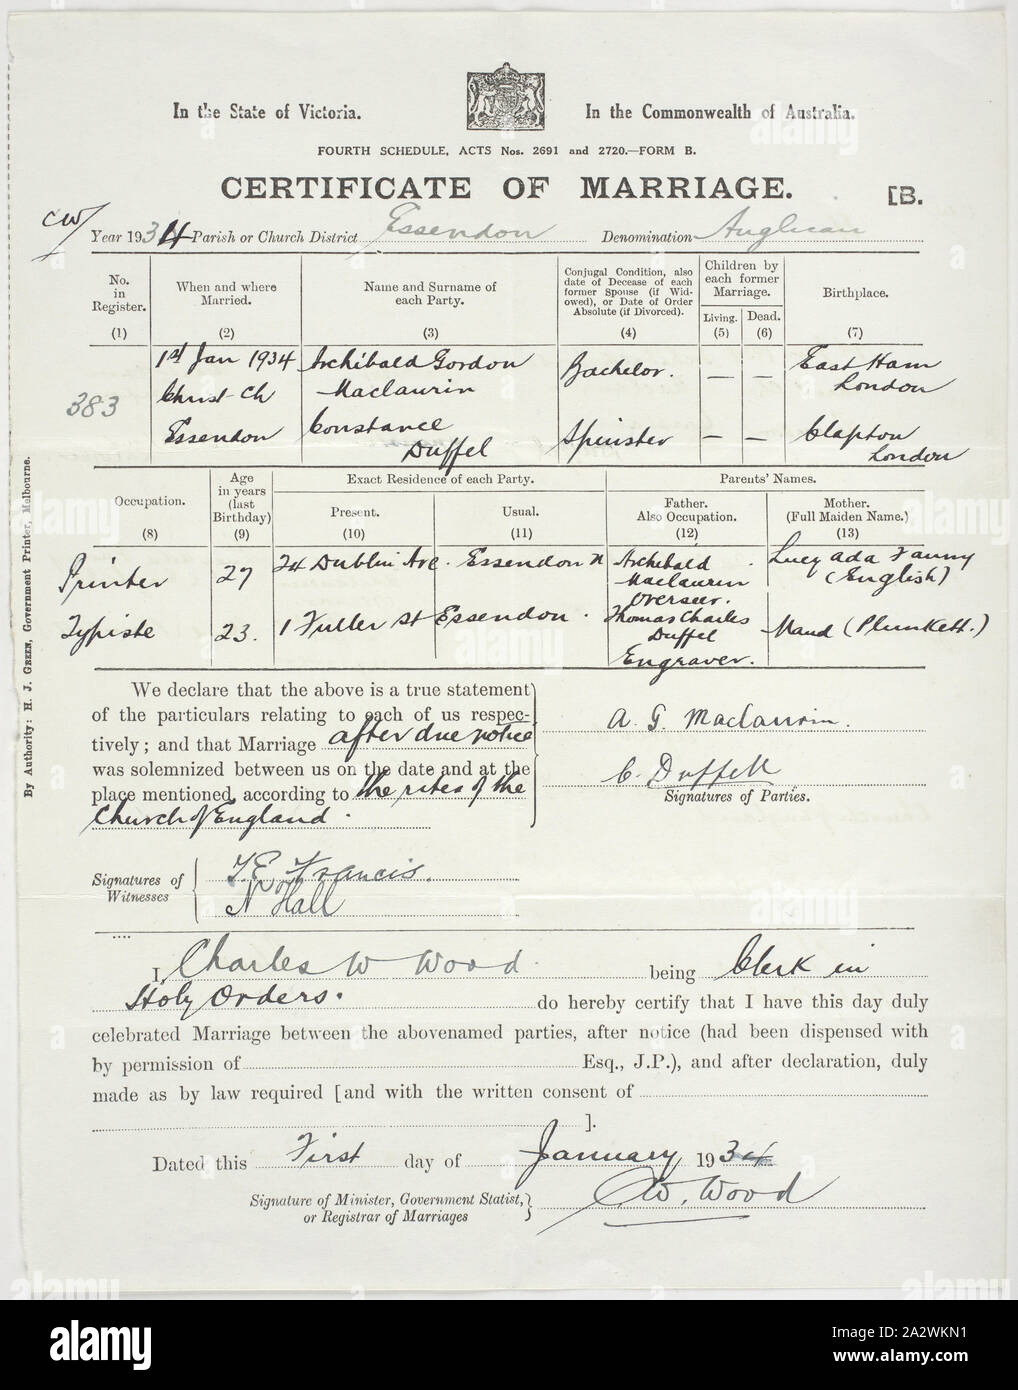 In the State of Victoria. In the Commonwealth of Australia.
FOURTH SCHEDULE, ACTS Nos. 2691 and 2720.—FORM B.
CERTIFICATE OF MARRIAGE. [B.
CW/
Year 1934 Parish or Church District Essendon Denomination Anglican
No. in Register. (1)
When and where Married. (2)
Name and Surname of each Party. (3)
Conjugal Condition, also date of Decease of each former Spouse (if Widowed), or Date of Order Absolute (if Divorced). (4)
Children by each former Marriage.
Living. (5) Dead. (6)
Birthplace. (7)
383
1st Jan 1934
Christ Ch
Essendon
Archibald Gordon
Maclaurin
Bachelor. — —
East Ham
London
Constance
Duffel
Spinster — —
Clapton
London
Occupation. (8)
Age in years (last Birthday) (9)
Exact Residence of each Party.
Present. (10) Usual. (11)
Parents' Names.
Father. Also Occupation. (12)
Mother. (Full Maiden Name.) (13)
Printer 27 24 Dublin Ave. Essendon N
Archibald
Maclaurin
Overseer.
Lucy Ada Fanny
(English)
Typiste 23. 1 Fuller St Essendon.
Thomas Charles
Duffel
Engraver.
Maud (Plunkett.)
We declare that the above is a true statement
of the particulars relating to each of us respec-
tively; and that Marriage after due notice
was solemnized between us on the date and at the
place mentioned, according to the rites of the
Church of England.
A. G. Maclaurin.
C. Duffell
Signatures of Parties.
Signatures of Witnesses
T. E. Francis.
N Hall
I Charles W Wood. being Clerk in
Holy Orders. do hereby certify that I have this day duly
celebrated Marriage between the abovenamed parties, after notice (had been dispensed with
by permission of Esq., J.P.), and after declaration, duly
made as by law required [and with the written consent of
].
Dated this First day of January 1934
Signature of Minister, Government Statist,
or Registrar of Marriages
CW. Wood
By Authority: H. J. GREEN, Government Printer, Melbourne.
alamy
Image ID: 2A2WKN1
www.alamy.com